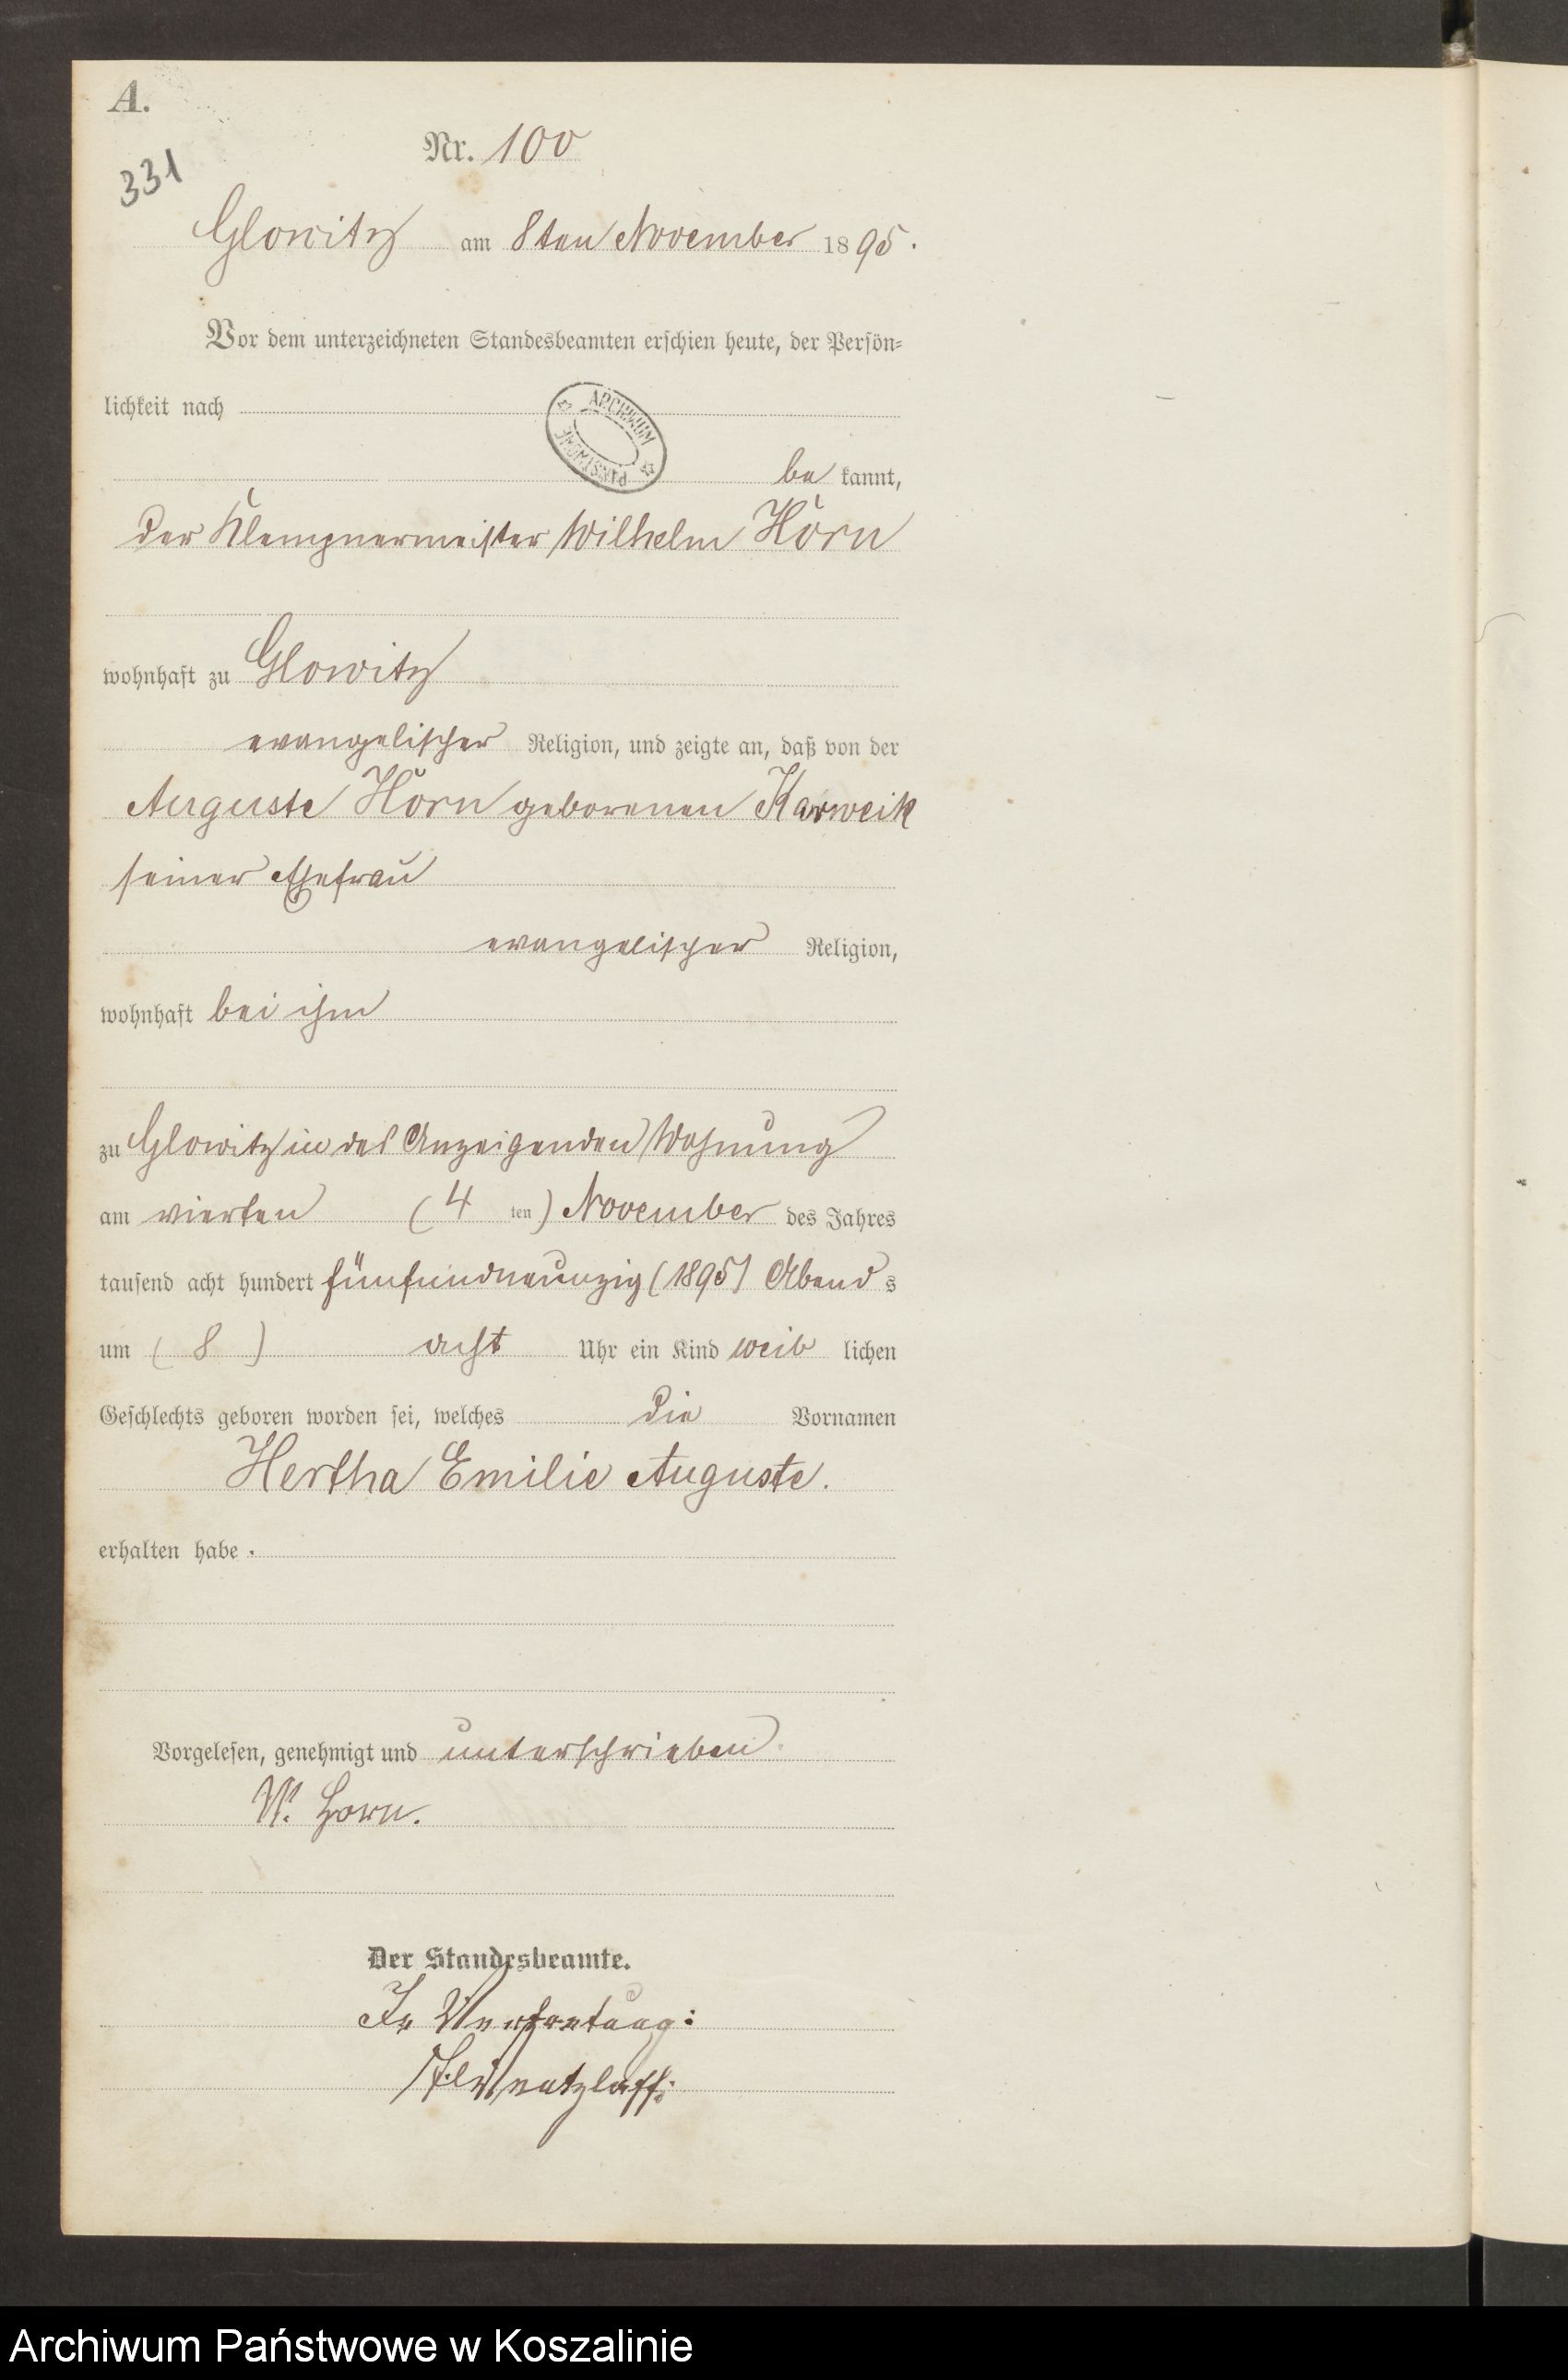 A.
331
Nr. 100
Glowitz am 8ten November 1895.
Vor dem unterzeichneten Standesbeamten erschien heute, der Persön-
lichkeit nach
ARCHIWUM
PAŃSTWOWE
be kannt,
der Klempnermeister Wilhelm Horn
wohnhaft zu Glowitz
evangelischer Religion, und zeigte an, daß von der
Auguste Horn geborenen Karweik
seiner Ehefrau
evangelischer Religion,
wohnhaft bei ihm
zu Glowitz in des Anzeigenden Wohnung
am vierten (4 ten) November des Jahres
tausend acht hundert fünfundneunzig (1895) Abend s
um (8) acht Uhr ein Kind weib lichen
Geschlechts geboren worden sei, welches die Vornamen
Hertha Emilie Auguste.
erhalten habe.
Vorgelesen, genehmigt und unterschrieben.
W. Horn.
Der Standesbeamte.
In Vertretung:
Archiwum Państwowe w Koszalinie